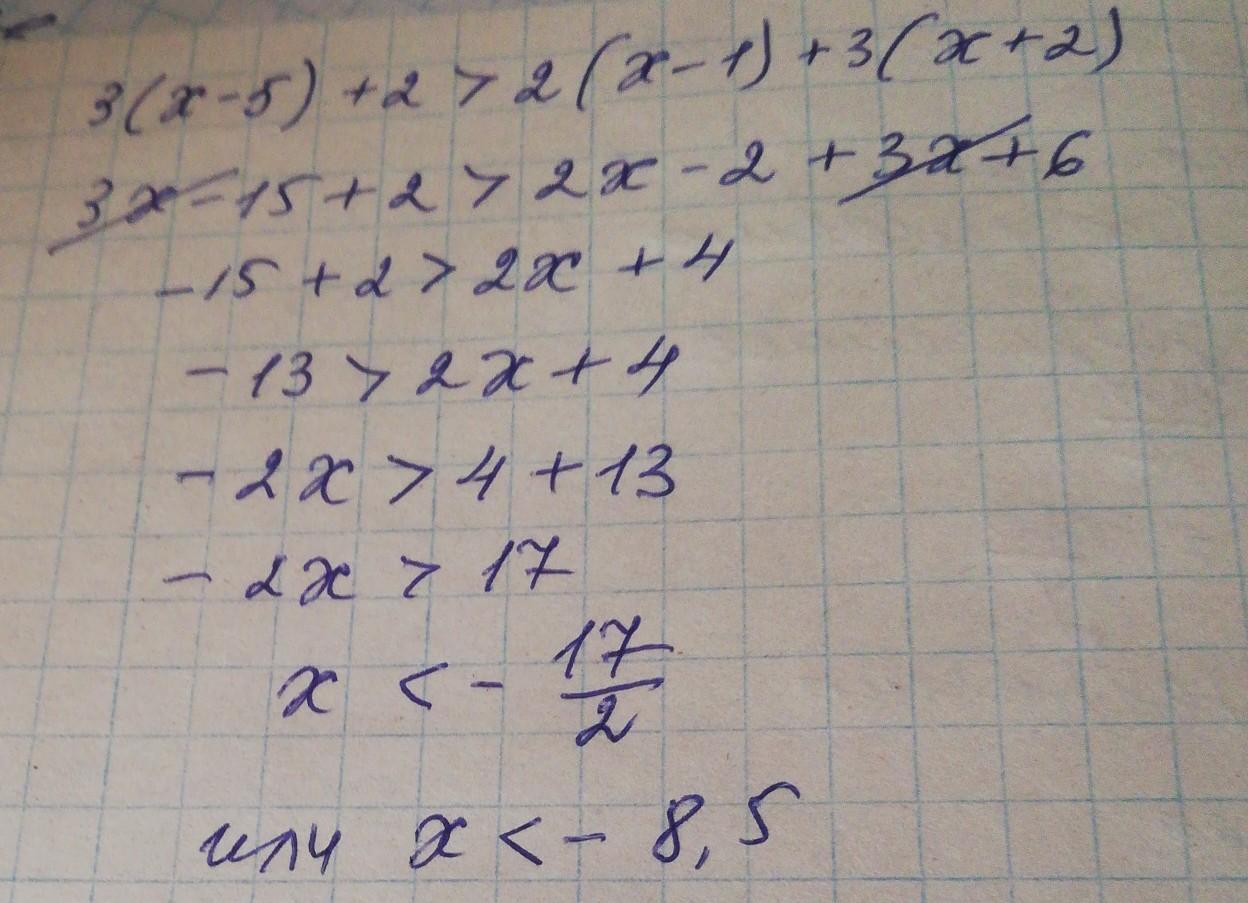 3(x-5)+2>2(x-1)+3(x+2)
3x-15+2>2x-2+3x+6
-15+2>2x+4
-13>2x+4
-2x>4+13
-2x>17
x<-17/2
или x<-8,5